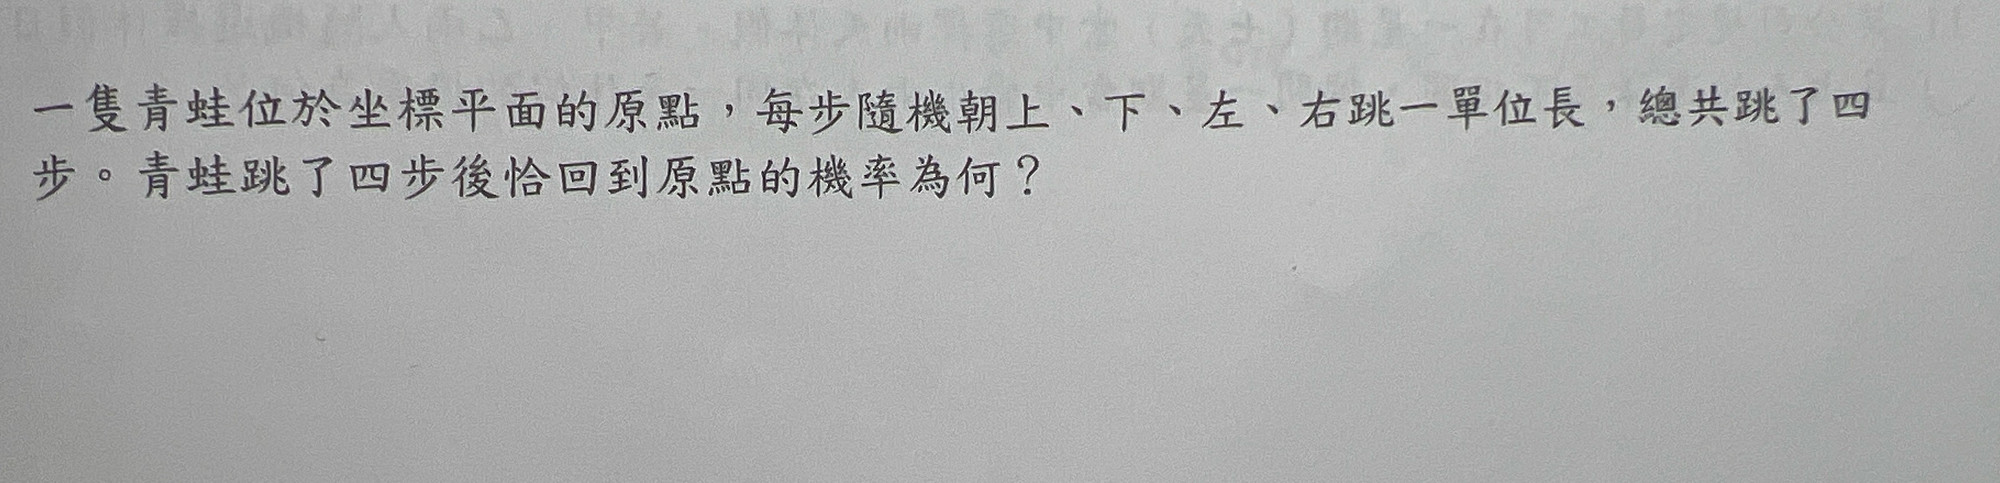 一隻青蛙位於坐標平面的原點，每步隨機朝上、下、左、右跳一單位長，總共跳了四
步。青蛙跳了四步後恰回到原點的機率為何？